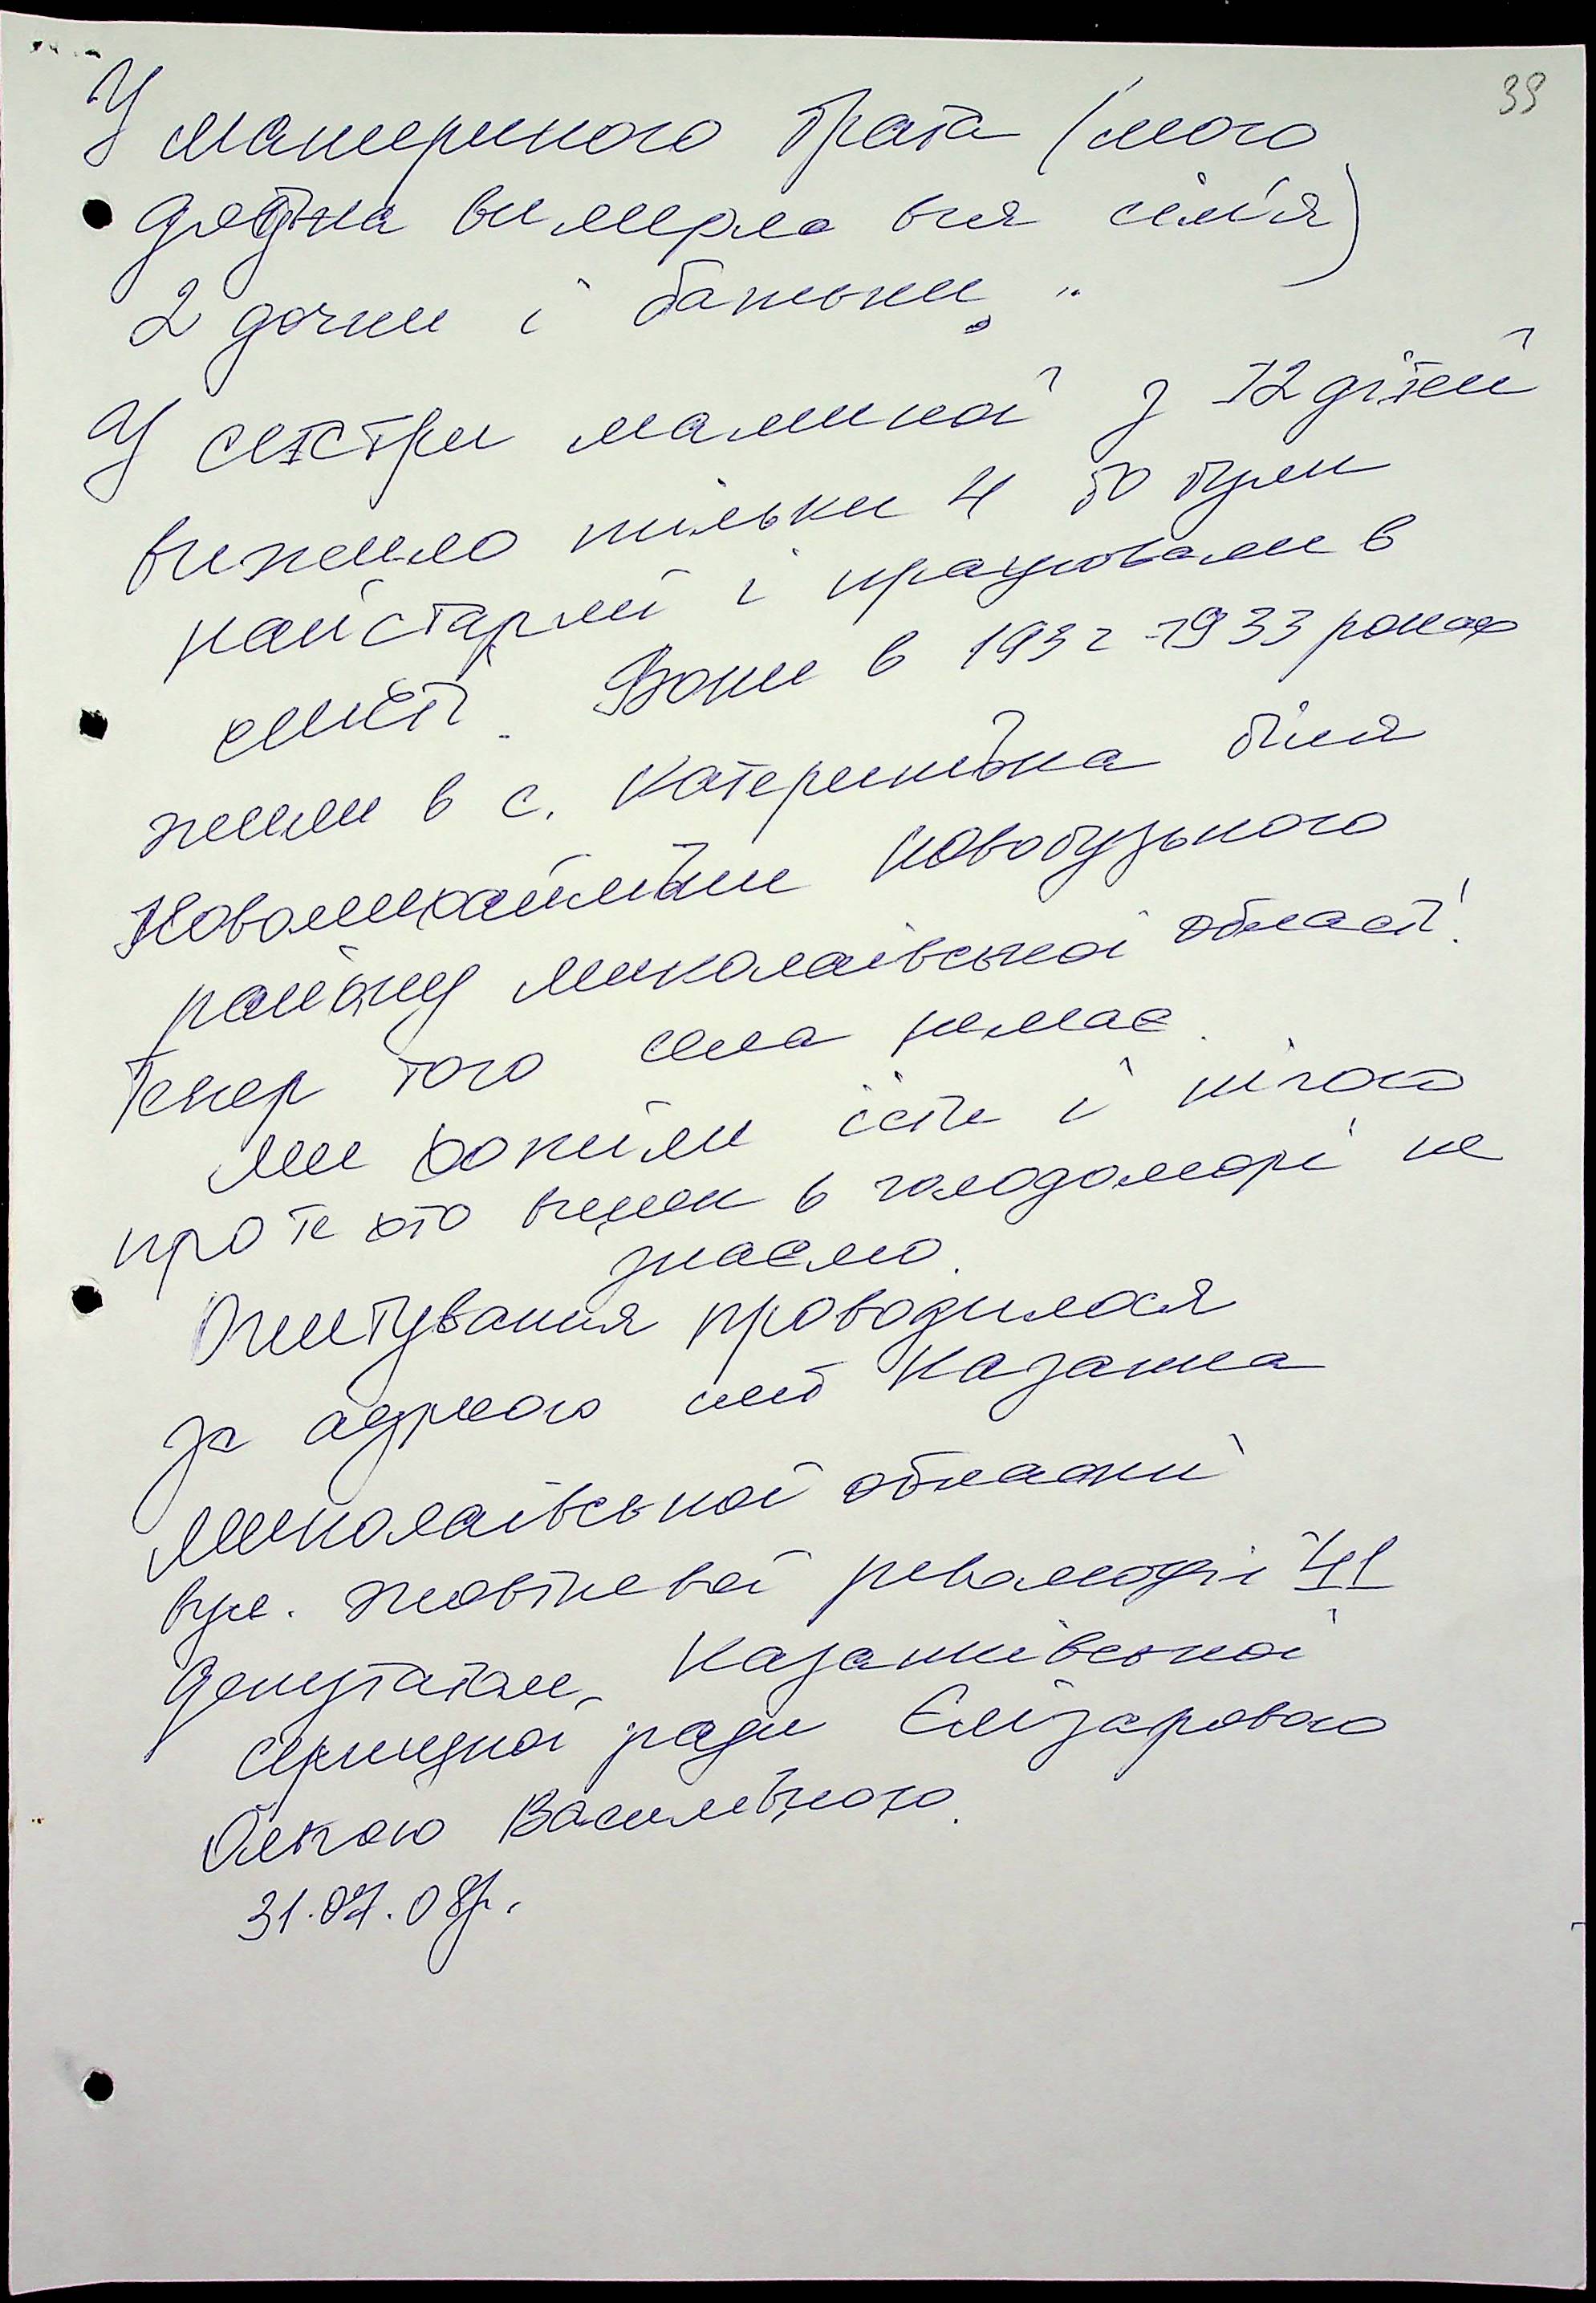 39
У материного брата (мого
дядька вимерла вся сім'я)
2 дочки і батьки.
У сестри маминої з 12 дітей
вижило тільки 4 бо були
найстарші і працювали в
смт. Вони в 1932-1933 роках
жили в с. Катеринівка біля
Новомихайлівки Новобузького
району Миколаївської області.
Тепер того села немає.
Ми хотіли їсти і нічого
про те хто винен в голодоморі не
знаємо.
Опитування проводилося
за адресою смт Казанка
Миколаївської області
вул. Жовтневої революції 41
депутатом Казанківської
селищної ради Єлізаровою
Ольгою Василівною.
31.07.08р.